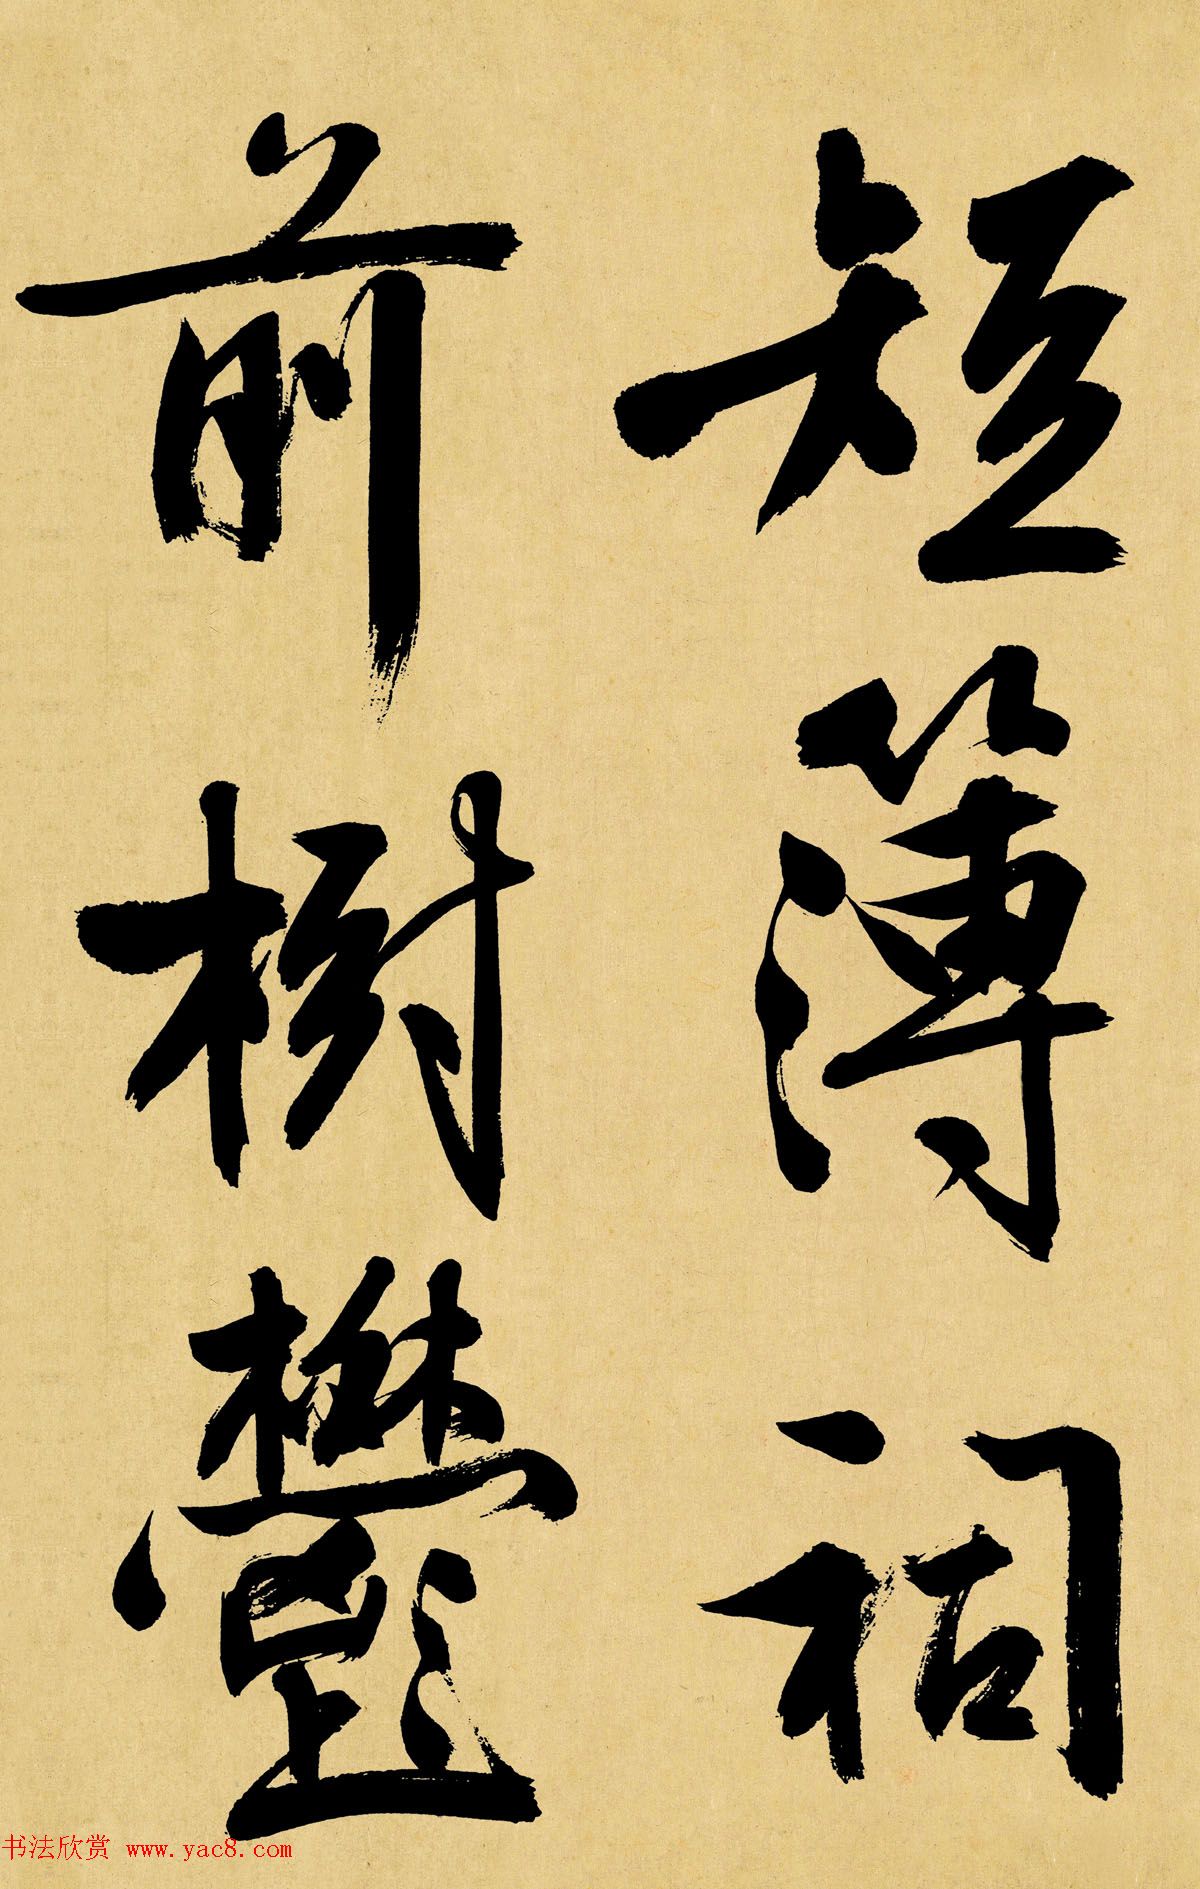 短簿祠
前樹鬱
书法欣赏 www.yac8.com